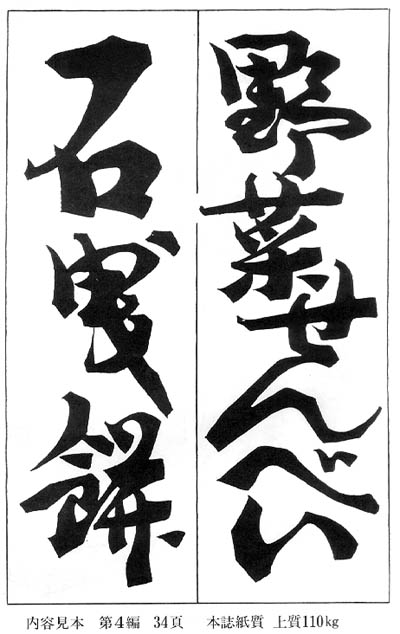 野菜せんべい
石曳餅
内容見本 第4編 34頁 本誌紙質 上質110kg